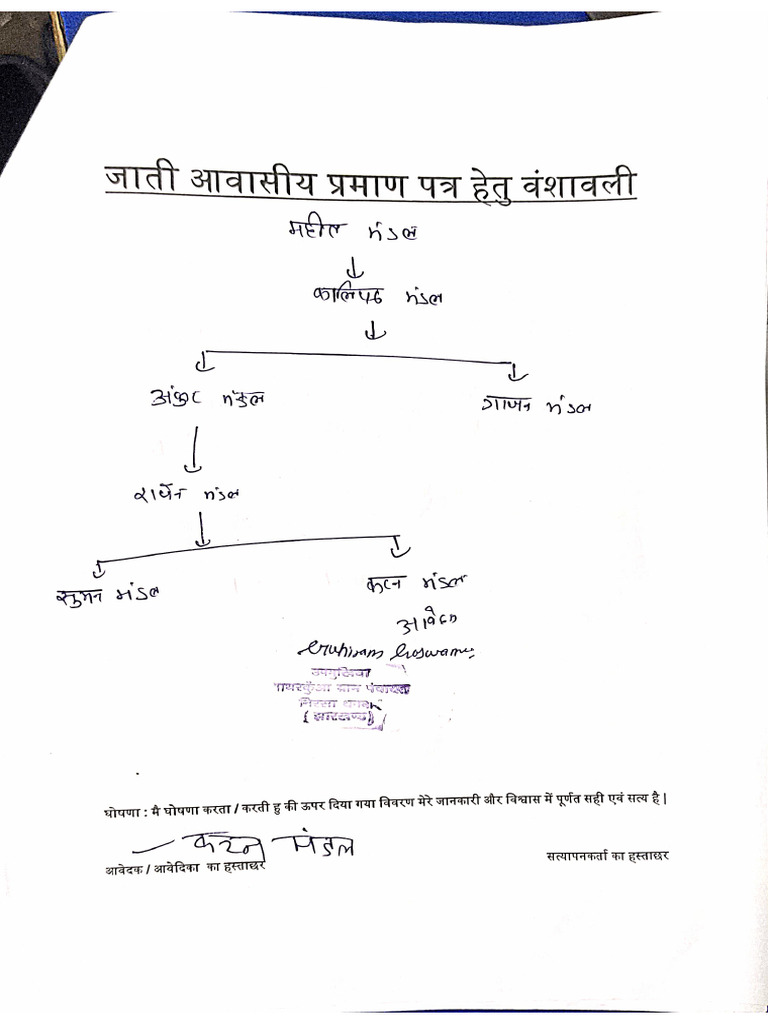 जाती आवासीय प्रमाण पत्र हेतु वंशावली
महील मंडल
कालिपद मंडल
अंकुर मंडल
राजन मंडल
मंडल
सुमन मंडल
करन मंडल
आवेदक
Goswami
उपमुखिया
पाथरकुँआ ग्राम पंचायत
निरसा धनबाद
(झारखण्ड)
घोषणा : मै घोषणा करता / करती हु की ऊपर दिया गया विवरण मेरे जानकारी और विश्वास में पूर्णत सही एवं सत्य है |
करन मंडल
आवेदक / आवेदिका का हस्ताछर
सत्यापनकर्ता का हस्ताछर